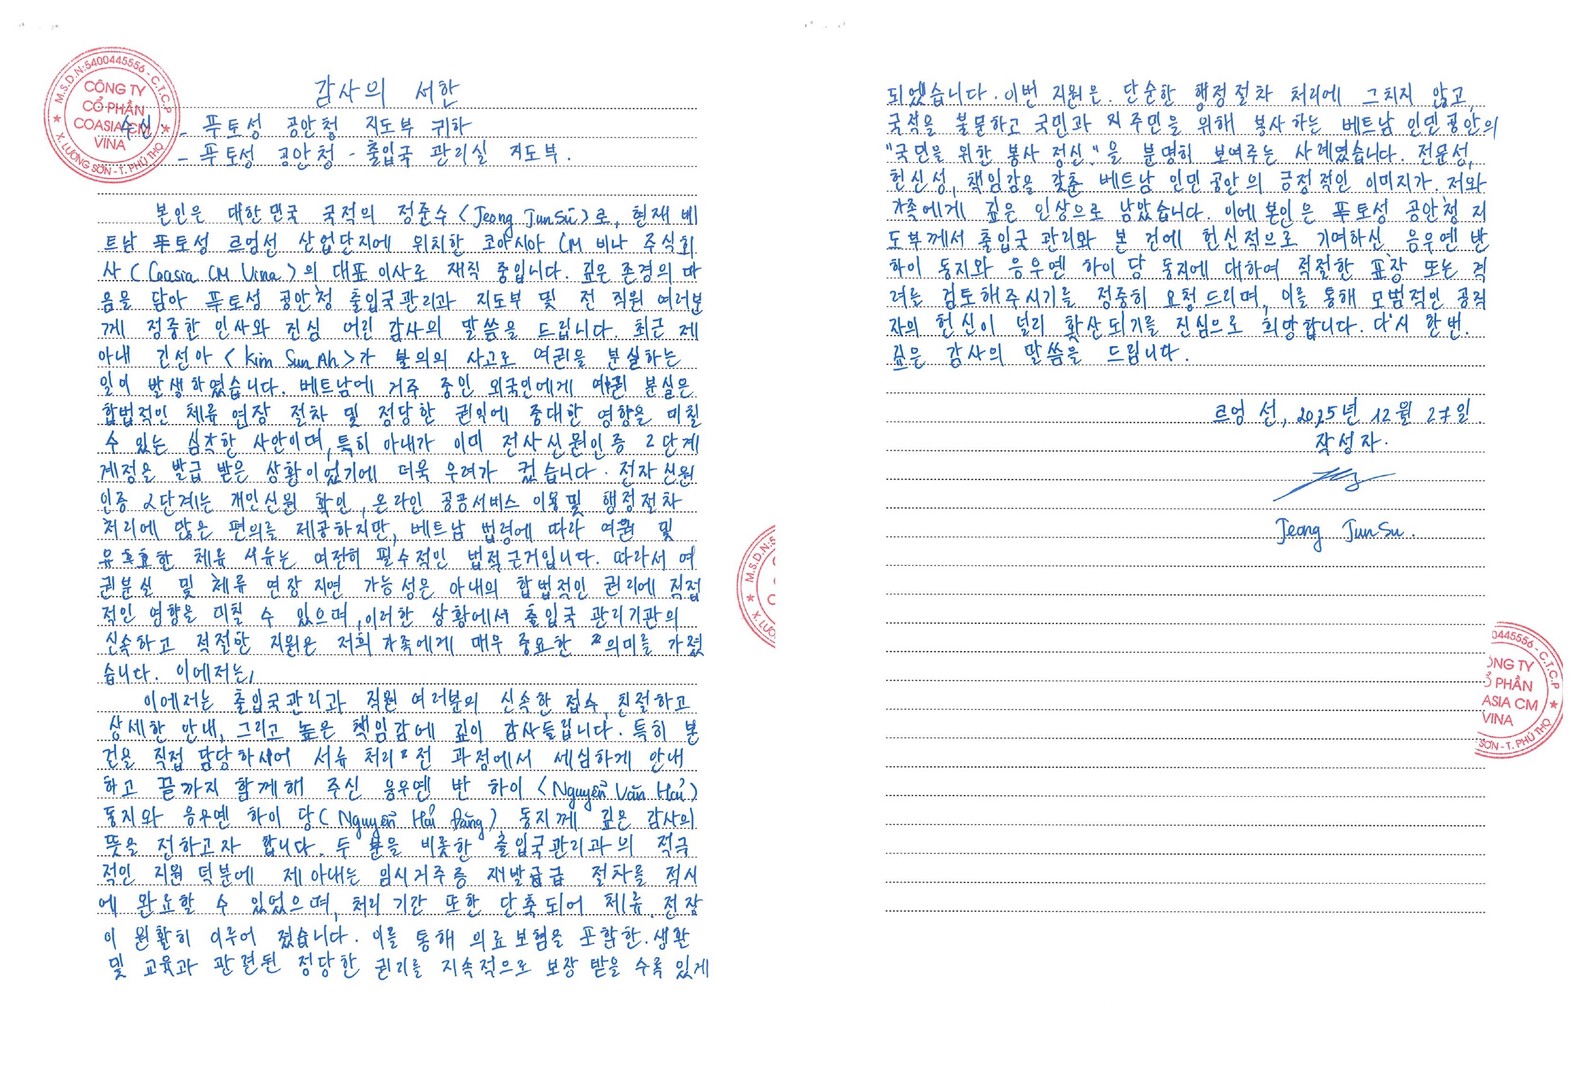 감사의 서한
수신 - 푸토성 공안청 지도부 귀하
- 푸토성 공안청 - 출입국 관리실 지도부.
M.S.D.N:5400445556 - C.T.C.P
CÔNG TY
CỔ PHẦN
COASIA CM
VINA
X. LƯƠNG SƠN - T. PHÚ THỌ
본인은 대한민국 국적의 정준수 <Jeong JunSu>로, 현재 베
트남 푸토성 르엉선 산업단지에 위치한 코아시아 CM 비나 주식회
사 <Coasia CM Vina>의 대표이사로 재직 중입니다. 깊은 존경의 마
음을 담아 푸토성 공안청 출입국관리과 지도부 및 전 직원 여러분
께 정중한 인사와 진심 어린 감사의 말씀을 드립니다. 최근 제
아내 김선아 <Kim Sun Ah>가 불의의 사고로 여권을 분실하는
일이 발생하였습니다. 베트남에 거주 중인 외국인에게 여권 분실은
합법적인 체류 연장 절차 및 정당한 권익에 중대한 영향을 미칠
수 있는 심각한 사안이며, 특히 아내가 이미 전자신원인증 2단계
계정은 발급 받은 상황이었기에 더욱 우려가 컸습니다. 전자신원
인증 2단계는 개인신원 확인, 온라인 공공서비스 이용및 행정절차
처리에 많은 편의를 제공하지만, 베트남 법령에 따라 여권 및
유효한 체류 서류는 여전히 필수적인 법적근거입니다. 따라서 여
권분실 및 체류 연장 지연 가능성은 아내의 합법적인 권리에 직접
적인 영향을 미칠 수 있으며, 이러한 상황에서 출입국 관리기관의
신속하고 적절한 지원은 저희 가족에게 매우 중요한 의미를 가졌
습니다. 이에저는,
이에저는 출입국관리과 직원 여러분의 신속한 접수, 친절하고
상세한 안내, 그리고 높은 책임감에 깊이 감사들립니다. 특히 본
건을 직접 담당하시어 서류 처리 전 과정에서 세심하게 안내
하고 끝까지 함께해 주신 응우옌 반 하이 <Nguyễn Văn Hải>
동지와 응우옌 하이 당 (Nguyễn Hải Đăng) 동지께 깊은 감사의
뜻을 전하고자 합니다. 두 분을 비롯한 출입국관리과의 적극
적인 지원 덕분에 제 아내는 임시거주증 재발급 절차를 적시
에 완료할 수 있었으며, 처리 기간 또한 단축되어 체류 연장
이 원활히 이루어 졌습니다. 이를 통해 의료보험을 포함한 생활
및 교육과 관련된 정당한 권리를 지속적으로 보장 받을 수록 있게
되었습니다. 이번 지원은. 단순한 행정절차 처리에 그치지 않고,
국적을 불문하고 국민과 지주민을 위해 봉사하는 베트남 인민공안의
"국민을 위한 봉사 정신."을 분명히 보여주는 사례였습니다. 전문성,
헌신성, 책임감을 갖춘 베트남 인민 공안의 긍정적인 이미지가. 저와
가족에게 깊은 인상으로 남았습니다. 이에 본인은 푸토성 공안청 지
도부께서 출입국 관리와 본 건에 헌신적으로 기여하신 응우옌 반
하이 동지와 응우옌 하이 당 동지에 대하여 적절한 표창 또는 격
려를 검토해주시기를 정중히 요청드리며, 이를 통해 모범적인 공직
자의 헌신이 널리 확산되기를 진심으로 희망합니다. 다시 한번.
깊은 감사의 말씀을 드립니다.
르엉 선, 2025년 12월 27일.
작성자.
Jeong JunSu.
M.S.D.N:5
X. LƯ
0445556 - C.T.C.P
ÔNG TY
Ổ PHẦN
ASIA CM
VINA
SƠN - T. PHÚ THỌ